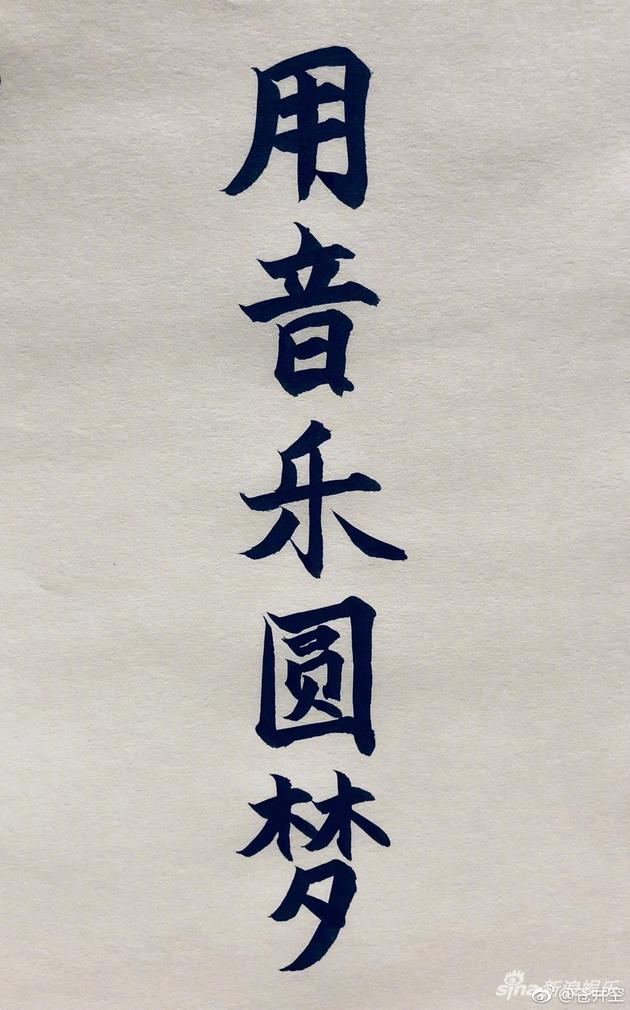 用音乐圆梦
sina新浪娱乐
@苍井空